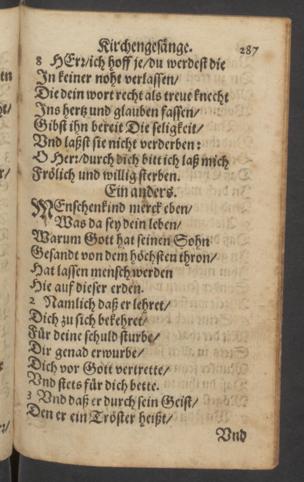 Kirchengesänge. 287
8 HErr/ich hoff je/du werdest die
In keiner noht verlassen/
Die dein wort recht als treue knecht
Ins hertz und glauben fassen/
Gibst ihn bereit Die seligkeit/
Vnd laßst sie nicht verderben:
O Herr/durch dich bitt ich laß mich
Frölich und willig sterben.
Ein anders.
MEnschenkind merck eben/
Was da sey dein leben/
Warum Gott hat seinen Sohn
Gesandt von dem höchsten thron/
Hat lassen mensch werden
Hie auf dieser erden.
2 Namlich daß er lehret/
Dich zu sich bekehret/
Für deine schuld sturbe/
Dir genad erwurbe/
Dich vor Gott vertrette/
Vnd stets für dich bette.
3 Vnd daß er durch sein Geist/
Den er ein Tröster heißt/
Vnd